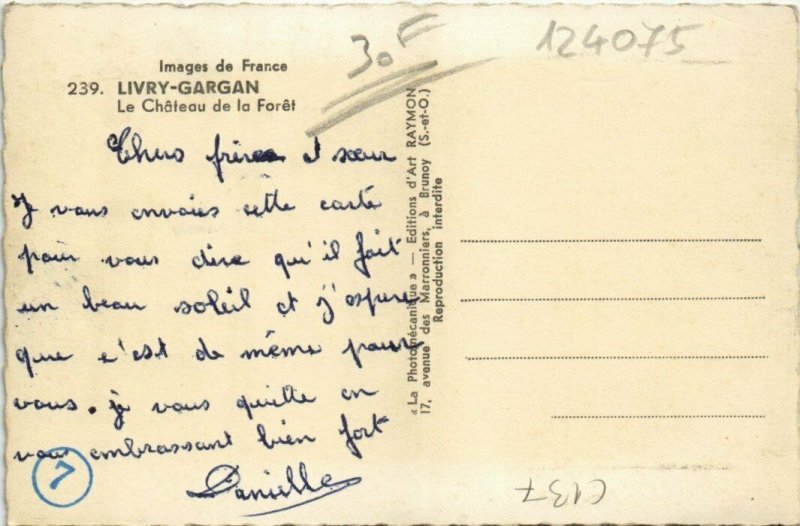 Images de France
239. LIVRY-GARGAN
Le Château de la Forêt
30F
124075
Chers frères et sœur
Je vous envoies cette carte
pour vous dire qu'il fait
un beau soleil et j'espere
que c'est de même pour
vous. je vous quitte en
vous embrassant bien fort
Danielle
7
«La Photomécanique» — Editions d'Art RAYMON
17, avenue des Marronniers, à Brunoy (S.-et-O.)
Reproduction interdite
C137